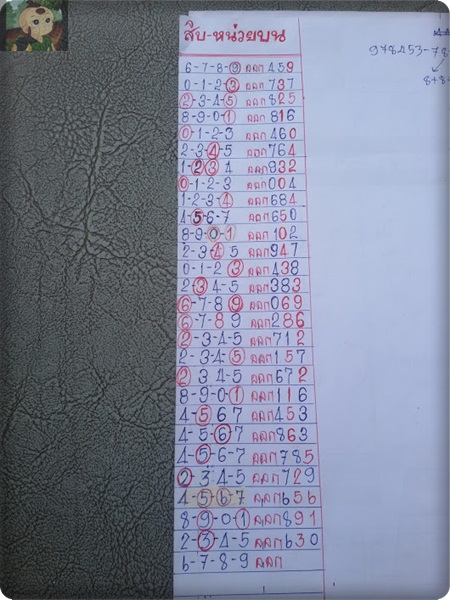 สิบ-หน่วยบน
6-7-8-9 ออก 459
0-1-2-3 ออก 737
2-3-4-5 ออก 825
8-9-0-1 ออก 816
0-1-2-3 ออก 460
2-3-4-5 ออก 764
1-2-3-4 ออก 932
0-1-2-3 ออก 004
1-2-3-4 ออก 684
4-5-6-7 ออก 650
8-9-0-1 ออก 102
2-3-4 5 ออก 947
0-1-2 3 ออก 438
2-3-4-5 ออก 383
6-7-8 9 ออก 069
6-7-8 9 ออก 286
2-3-4-5 ออก 712
2-3-4-5 ออก 157
2 3 4-5 ออก 672
8-9-0-1 ออก 116
4-5 6 7 ออก 453
4-5-6-7 ออก 863
4-5-6-7 ออก 785
2-3 4-5 ออก 729
4-5-6-7 ออก 656
8-9-0-1 ออก 891
2-3-4-5 ออก 630
6-7-8-9 ออก
978453-78
8+8